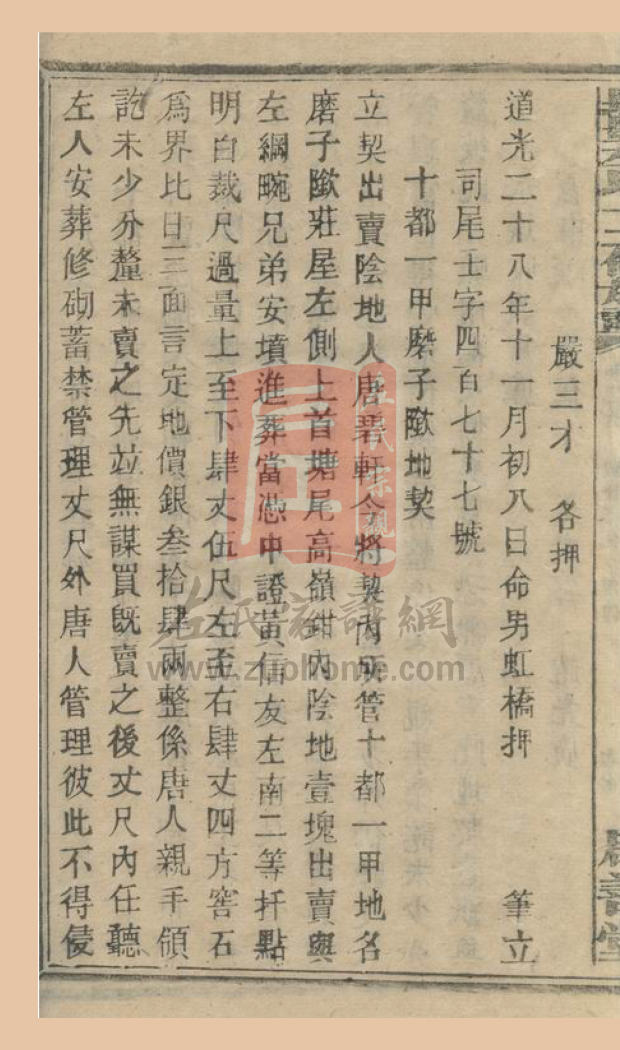 嚴三才　各押
道光二十八年十一月初八日命男虹橋押　筆立
司尾士字四百七十七號
十都一甲磨子㘭地契
立契出賣陰地人唐碧軒今將契內成管十都一甲地名
磨子㘭莊屋左側上首塘尾高嶺鉗內陰地壹塊出賣與
左綱畹兄弟安墳進葬當憑中證黃信友左南二等扦點
明白裁尺過量上至下肆丈伍尺左至右肆丈四方窖石
爲界比日三面言定地價銀叁拾肆兩整係唐人親手領
訖未少分釐未賣之先並無謀買旣賣之後丈尺內任聽
左人安葬修砌蓄禁管理丈尺外唐人管理彼此不得侵
左氏家譜網
www.zuohome.com